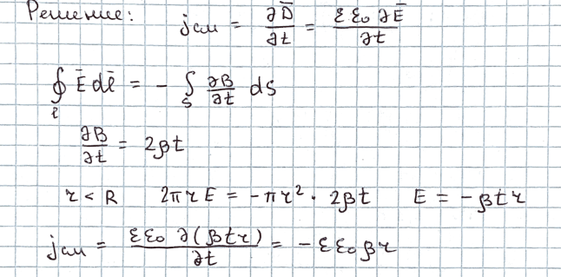 Решение: jсм = ∂D̄/∂t = εε₀∂Ē/∂t
∮ₗ Ē dl̄ = - ∫ₛ ∂B/∂t ds
∂B/∂t = 2βt
r < R 2πrE = -πr² · 2βt E = -βtr
jсм = εε₀ ∂(βtr)/∂t = -εε₀βr